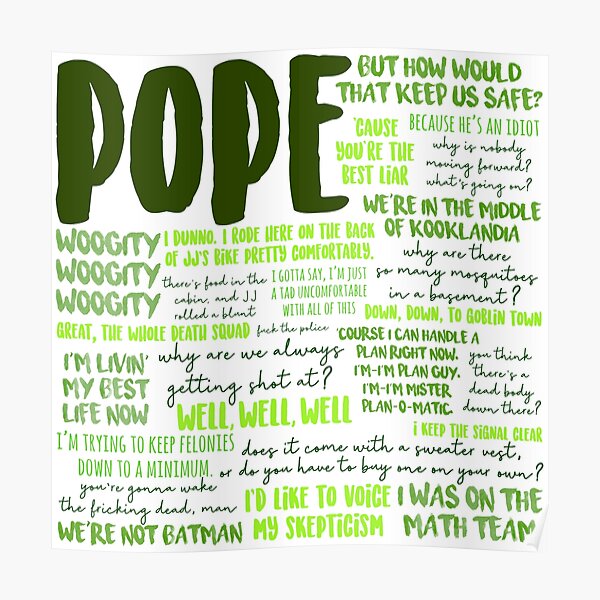 POPE
BUT HOW WOULD
THAT KEEP US SAFE?
'CAUSE
YOU'RE THE
BEST LIAR
BECAUSE HE'S AN IDIOT
why is nobody
moving forward?
what's going on?
WE'RE IN THE MIDDLE
OF KOOKLANDIA
WOOGITY
WOOGITY
WOOGITY
I DUNNO. I RODE HERE ON THE BACK
OF JJ'S BIKE PRETTY COMFORTABLY.
there's food in the
cabin, and JJ
rolled a blunt
I GOTTA SAY, I'M JUST
A TAD UNCOMFORTABLE
WITH ALL OF THIS
why are there
so many mosquitoes
in a basement?
DOWN, DOWN, TO GOBLIN TOWN
GREAT, THE WHOLE DEATH SQUAD
fuck the police
'COURSE I CAN HANDLE A
PLAN RIGHT NOW.
I'M-I'M PLAN GUY.
I'M-I'M MISTER
PLAN-O-MATIC.
you think
there's a
dead body
down there?
I'M LIVIN'
MY BEST
LIFE NOW
why are we always
getting shot at?
WELL, WELL, WELL
I KEEP THE SIGNAL CLEAR
I'M TRYING TO KEEP FELONIES
DOWN TO A MINIMUM.
does it come with a sweater vest,
or do you have to buy one on your own?
you're gonna wake
the fricking dead, man
I'D LIKE TO VOICE
MY SKEPTICISM
I WAS ON THE
MATH TEAM
WE'RE NOT BATMAN